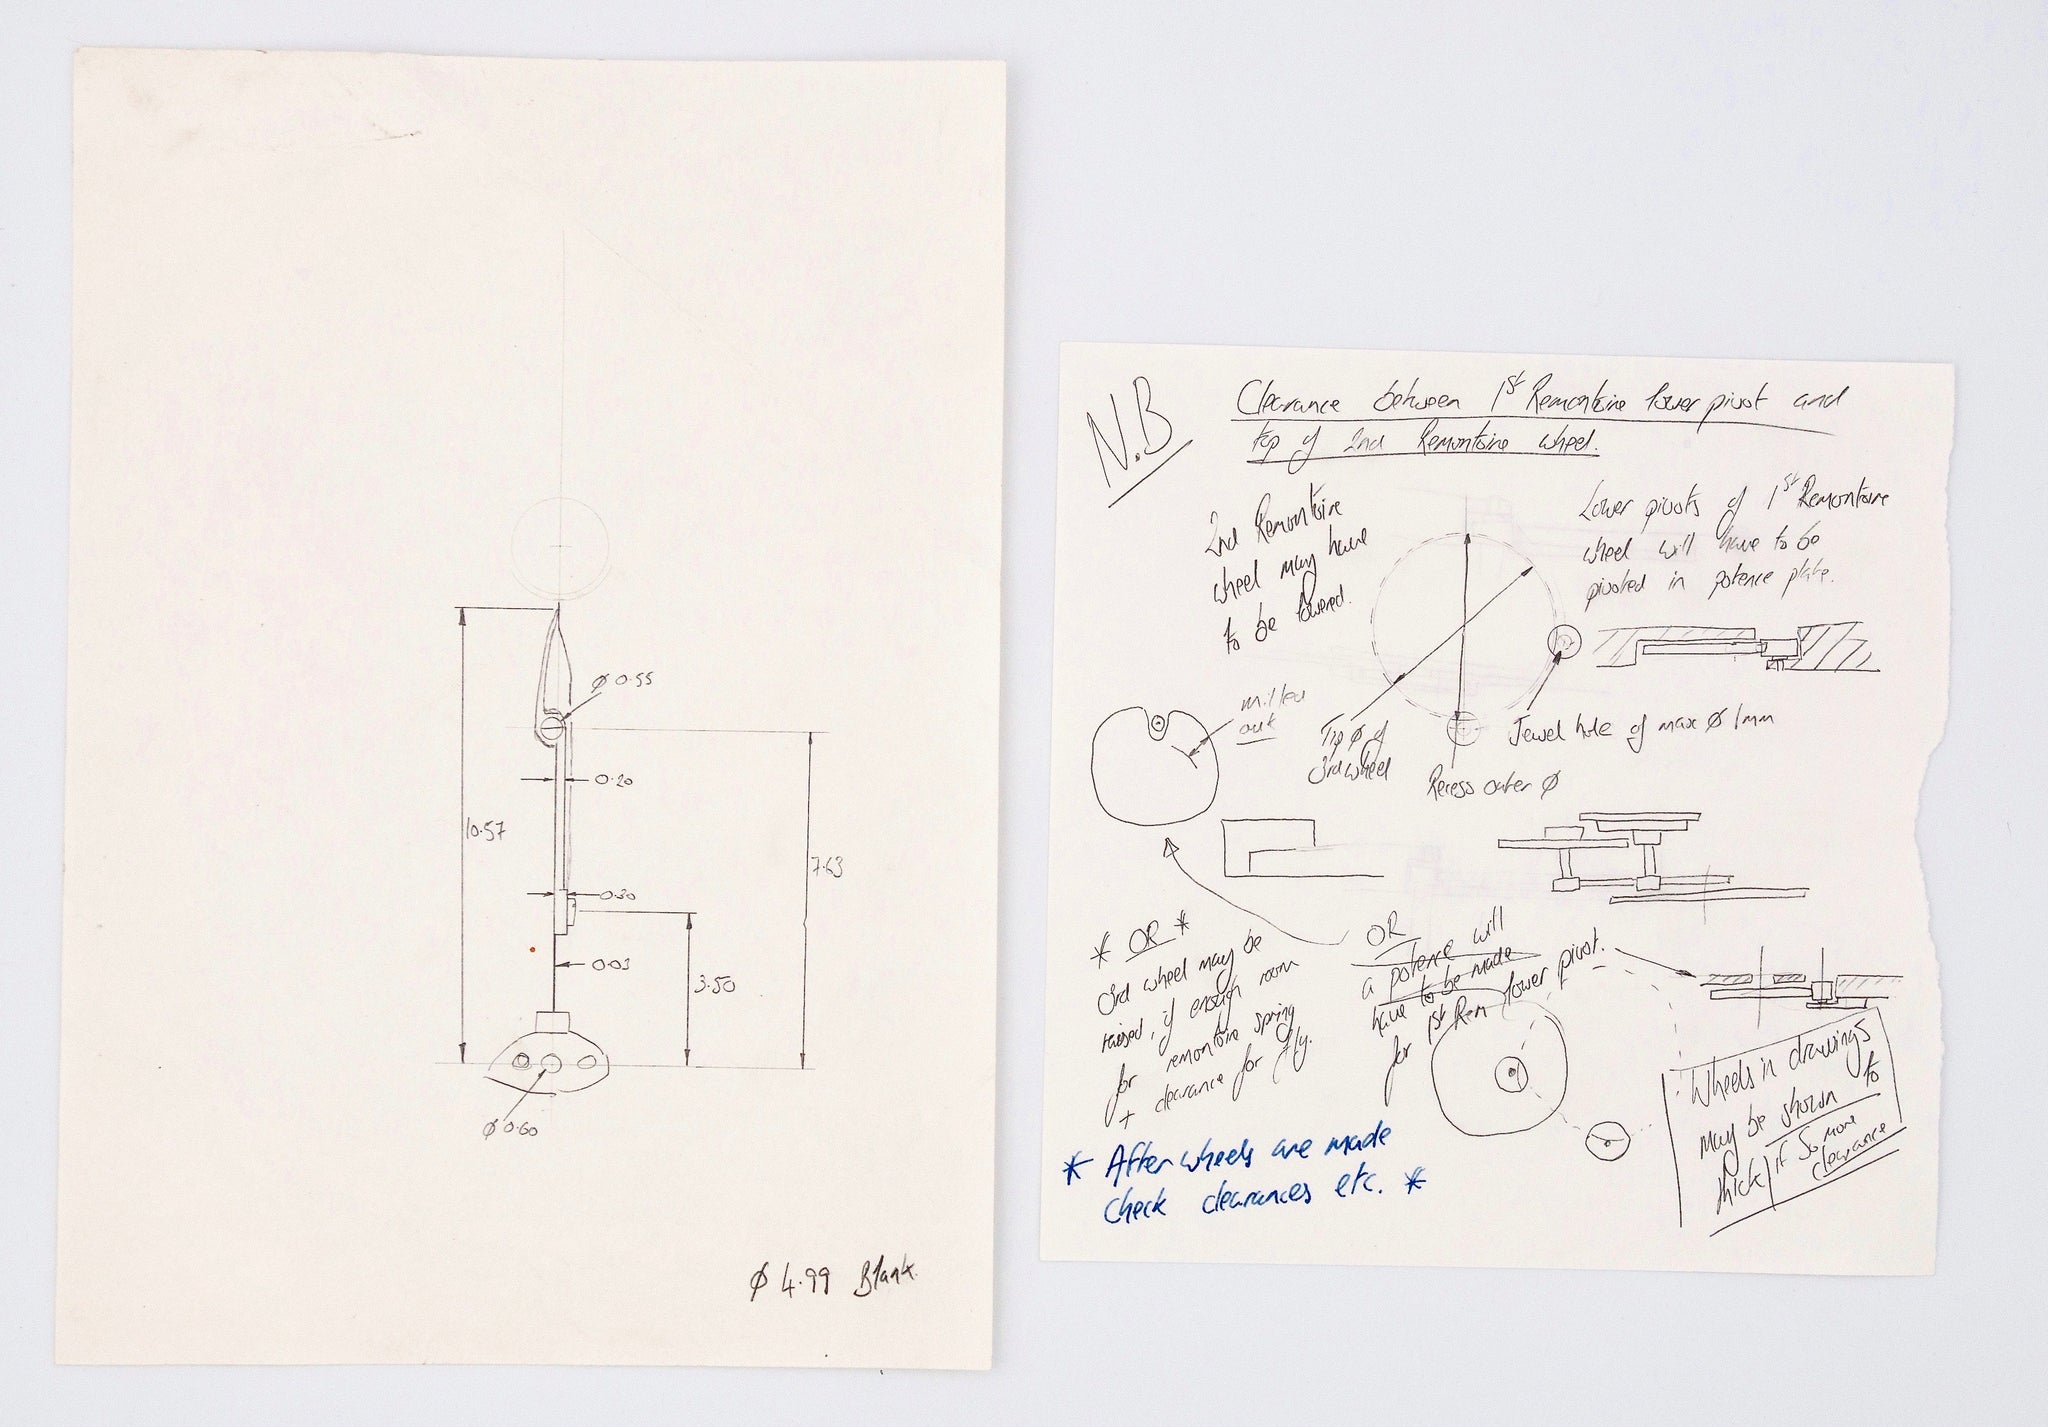 Ø 0.55
0.20
10.57
7.63
0.30
0.03
3.50
Ø 0.60
Ø 4.99 Blank.
N.B
Clearance between 1st Remontoire lower pivot and
top of 2nd Remontoire wheel.
2nd Remontoire
wheel may have
to be lowered.
Lower pivots of 1st Remontoire
wheel will have to be
pivoted in potence plate.
milled
out
Tip Ø of
3rd wheel
Jewel hole of max Ø 1mm
Recess outer Ø
* OR *
3rd wheel may be
raised, if enough room
for remontoire spring
+ clearance for fly.
OR
a potence will
have to be made
for 1st Rem lower pivot.
Wheels in drawings
may be shown to
thick if so more
clearance
* After wheels are made
check clearances etc. *